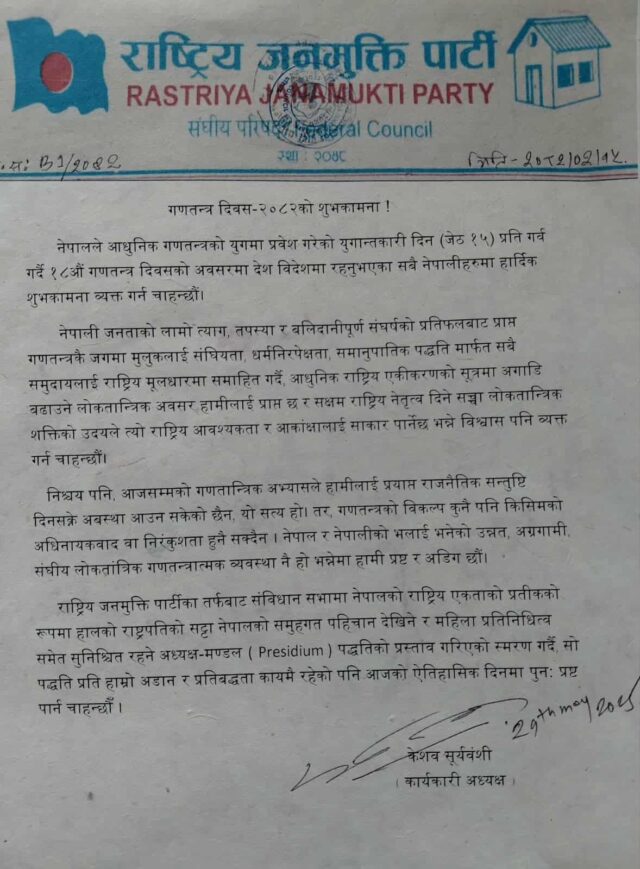 राष्ट्रिय जनमुक्ति पार्टी
RASTRIYA JANAMUKTI PARTY
संघीय परिषद Federal Council
स्था : २०४८
.सं: B1/2082
मिति - २०८२/०२/१५.
गणतन्त्र दिवस-२०८२को शुभकामना !
नेपालले आधुनिक गणतन्त्रको युगमा प्रवेश गरेको युगान्तकारी दिन (जेठ १५) प्रति गर्व
गर्दै १८औं गणतन्त्र दिवसको अवसरमा देश विदेशमा रहनुभएका सबै नेपालीहरुमा हार्दिक
शुभकामना व्यक्त गर्न चाहन्छौं।
नेपाली जनताको लामो त्याग, तपस्या र बलिदानीपूर्ण संघर्षको प्रतिफलबाट प्राप्त
गणतन्त्रकै जगमा मुलुकलाई संघियता, धर्मनिरपेक्षता, समानुपातिक पद्धति मार्फत सबै
समुदायलाई राष्ट्रिय मूलधारमा समाहित गर्दै, आधुनिक राष्ट्रिय एकीकरणको सूत्रमा अगाडि
बढाउने लोकतान्त्रिक अवसर हामीलाई प्राप्त छ र सक्षम राष्ट्रिय नेतृत्व दिने सच्चा लोकतान्त्रिक
शक्तिको उदयले त्यो राष्ट्रिय आवश्यकता र आकांक्षालाई साकार पार्नेछ भन्ने विश्वास पनि व्यक्त
गर्न चाहन्छौं।
निश्चय पनि, आजसम्मको गणतान्त्रिक अभ्यासले हामीलाई प्रयाप्त राजनैतिक सन्तुष्टि
दिनसक्ने अवस्था आउन सकेको छैन, यो सत्य हो। तर, गणतन्त्रको विकल्प कुनै पनि किसिमको
अधिनायकवाद वा निरंकुशता हुनै सक्दैन । नेपाल र नेपालीको भलाई भनेको उन्नत, अग्रगामी,
संघीय लोकतांत्रिक गणतन्त्रात्मक व्यवस्था नै हो भन्नेमा हामी प्रष्ट र अडिग छौं।
राष्ट्रिय जनमुक्ति पार्टीका तर्फबाट संविधान सभामा नेपालको राष्ट्रिय एकताको प्रतीकको
रूपमा हालको राष्ट्रपतिको सट्टा नेपालको समुहगत पहिचान देखिने र महिला प्रतिनिधित्व
समेत सुनिश्चित रहने अध्यक्ष-मण्डल ( Presidium ) पद्धतिको प्रस्ताव गरिएको स्मरण गर्दै, सो
पद्धति प्रति हाम्रो अडान र प्रतिबद्धता कायमै रहेको पनि आजको ऐतिहासिक दिनमा पुन: प्रष्ट
पार्न चाहन्छौँ ।
29th may 2025
केशव सूर्यवंशी
( कार्यकारी अध्यक्ष )